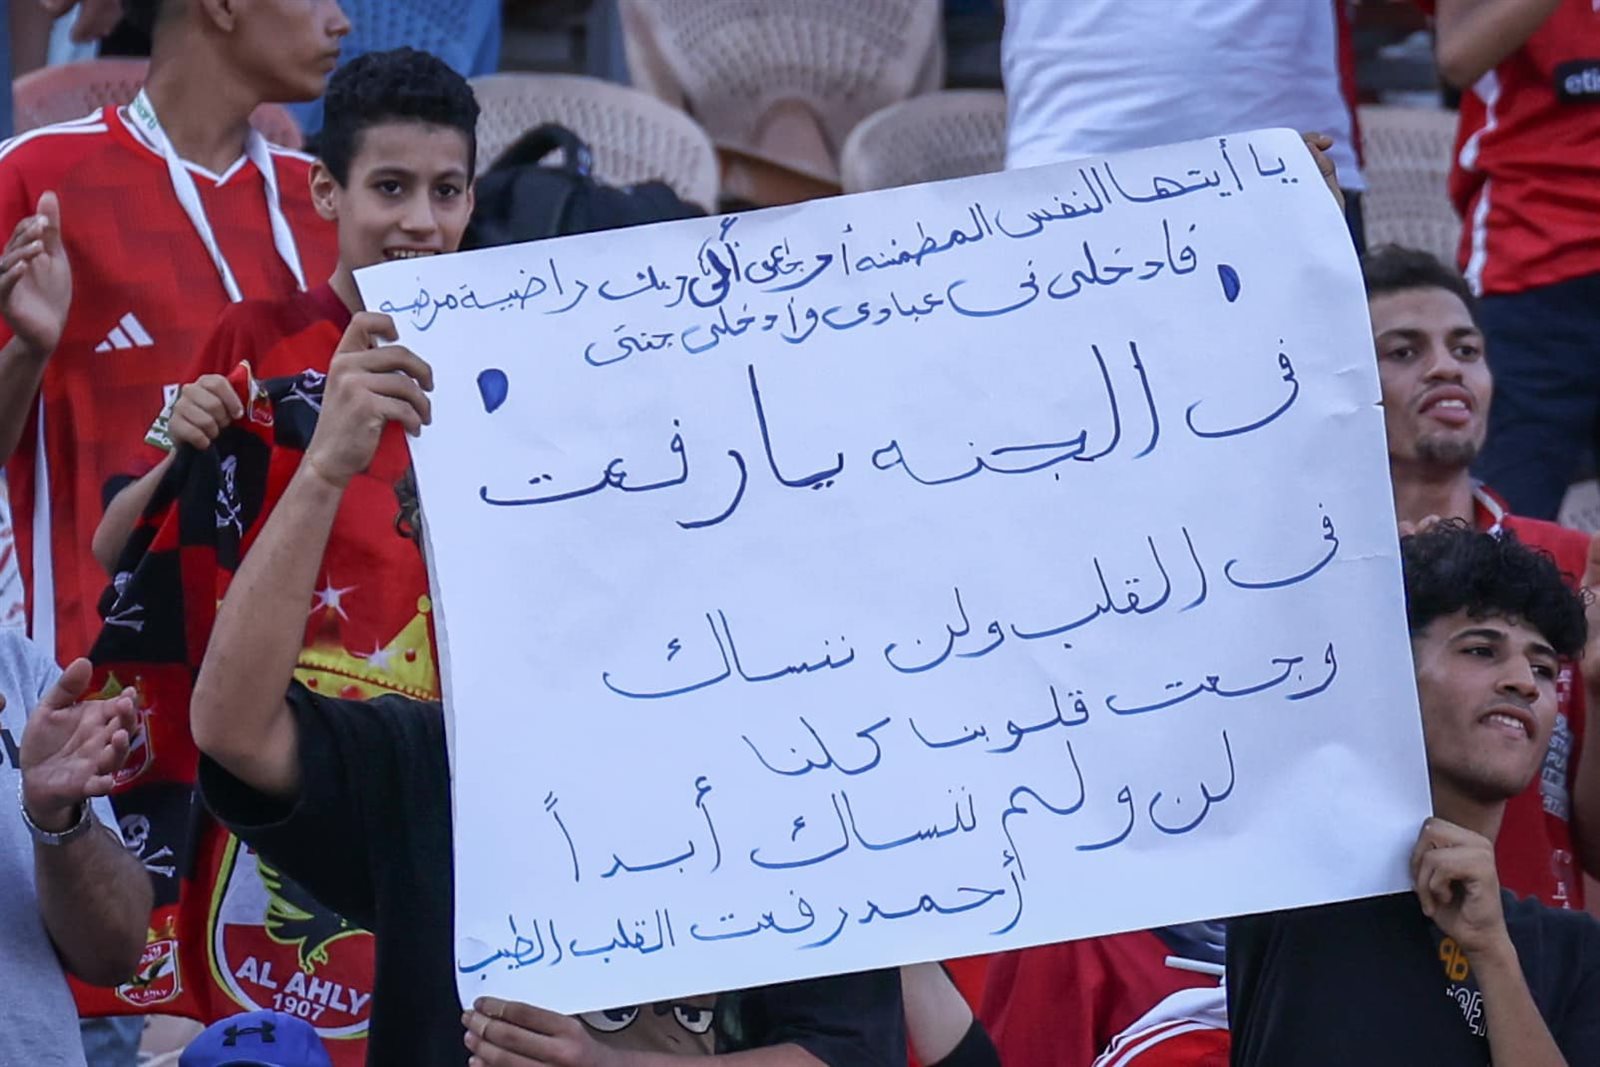 يا أيتها النفس المطمئنه أرجاعى ألى ربك راضية مرضيه
فادخلى فى عبادى وأدخلى جنتى
فى الجنه يا رفعت
فى القلب ولن ننساك
وجعت قلوبنا كلنا
لن ولم ننساك أبداً
أحمد رفعت القلب الطيب
AL AHLY
1907